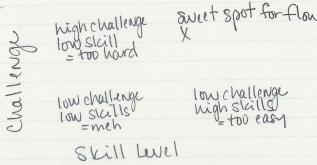 Challenge
high challenge
low skill
= too hard
sweet spot for flow
X
low challenge
low skills
= meh
low challenge
high skills
= too easy
Skill Level